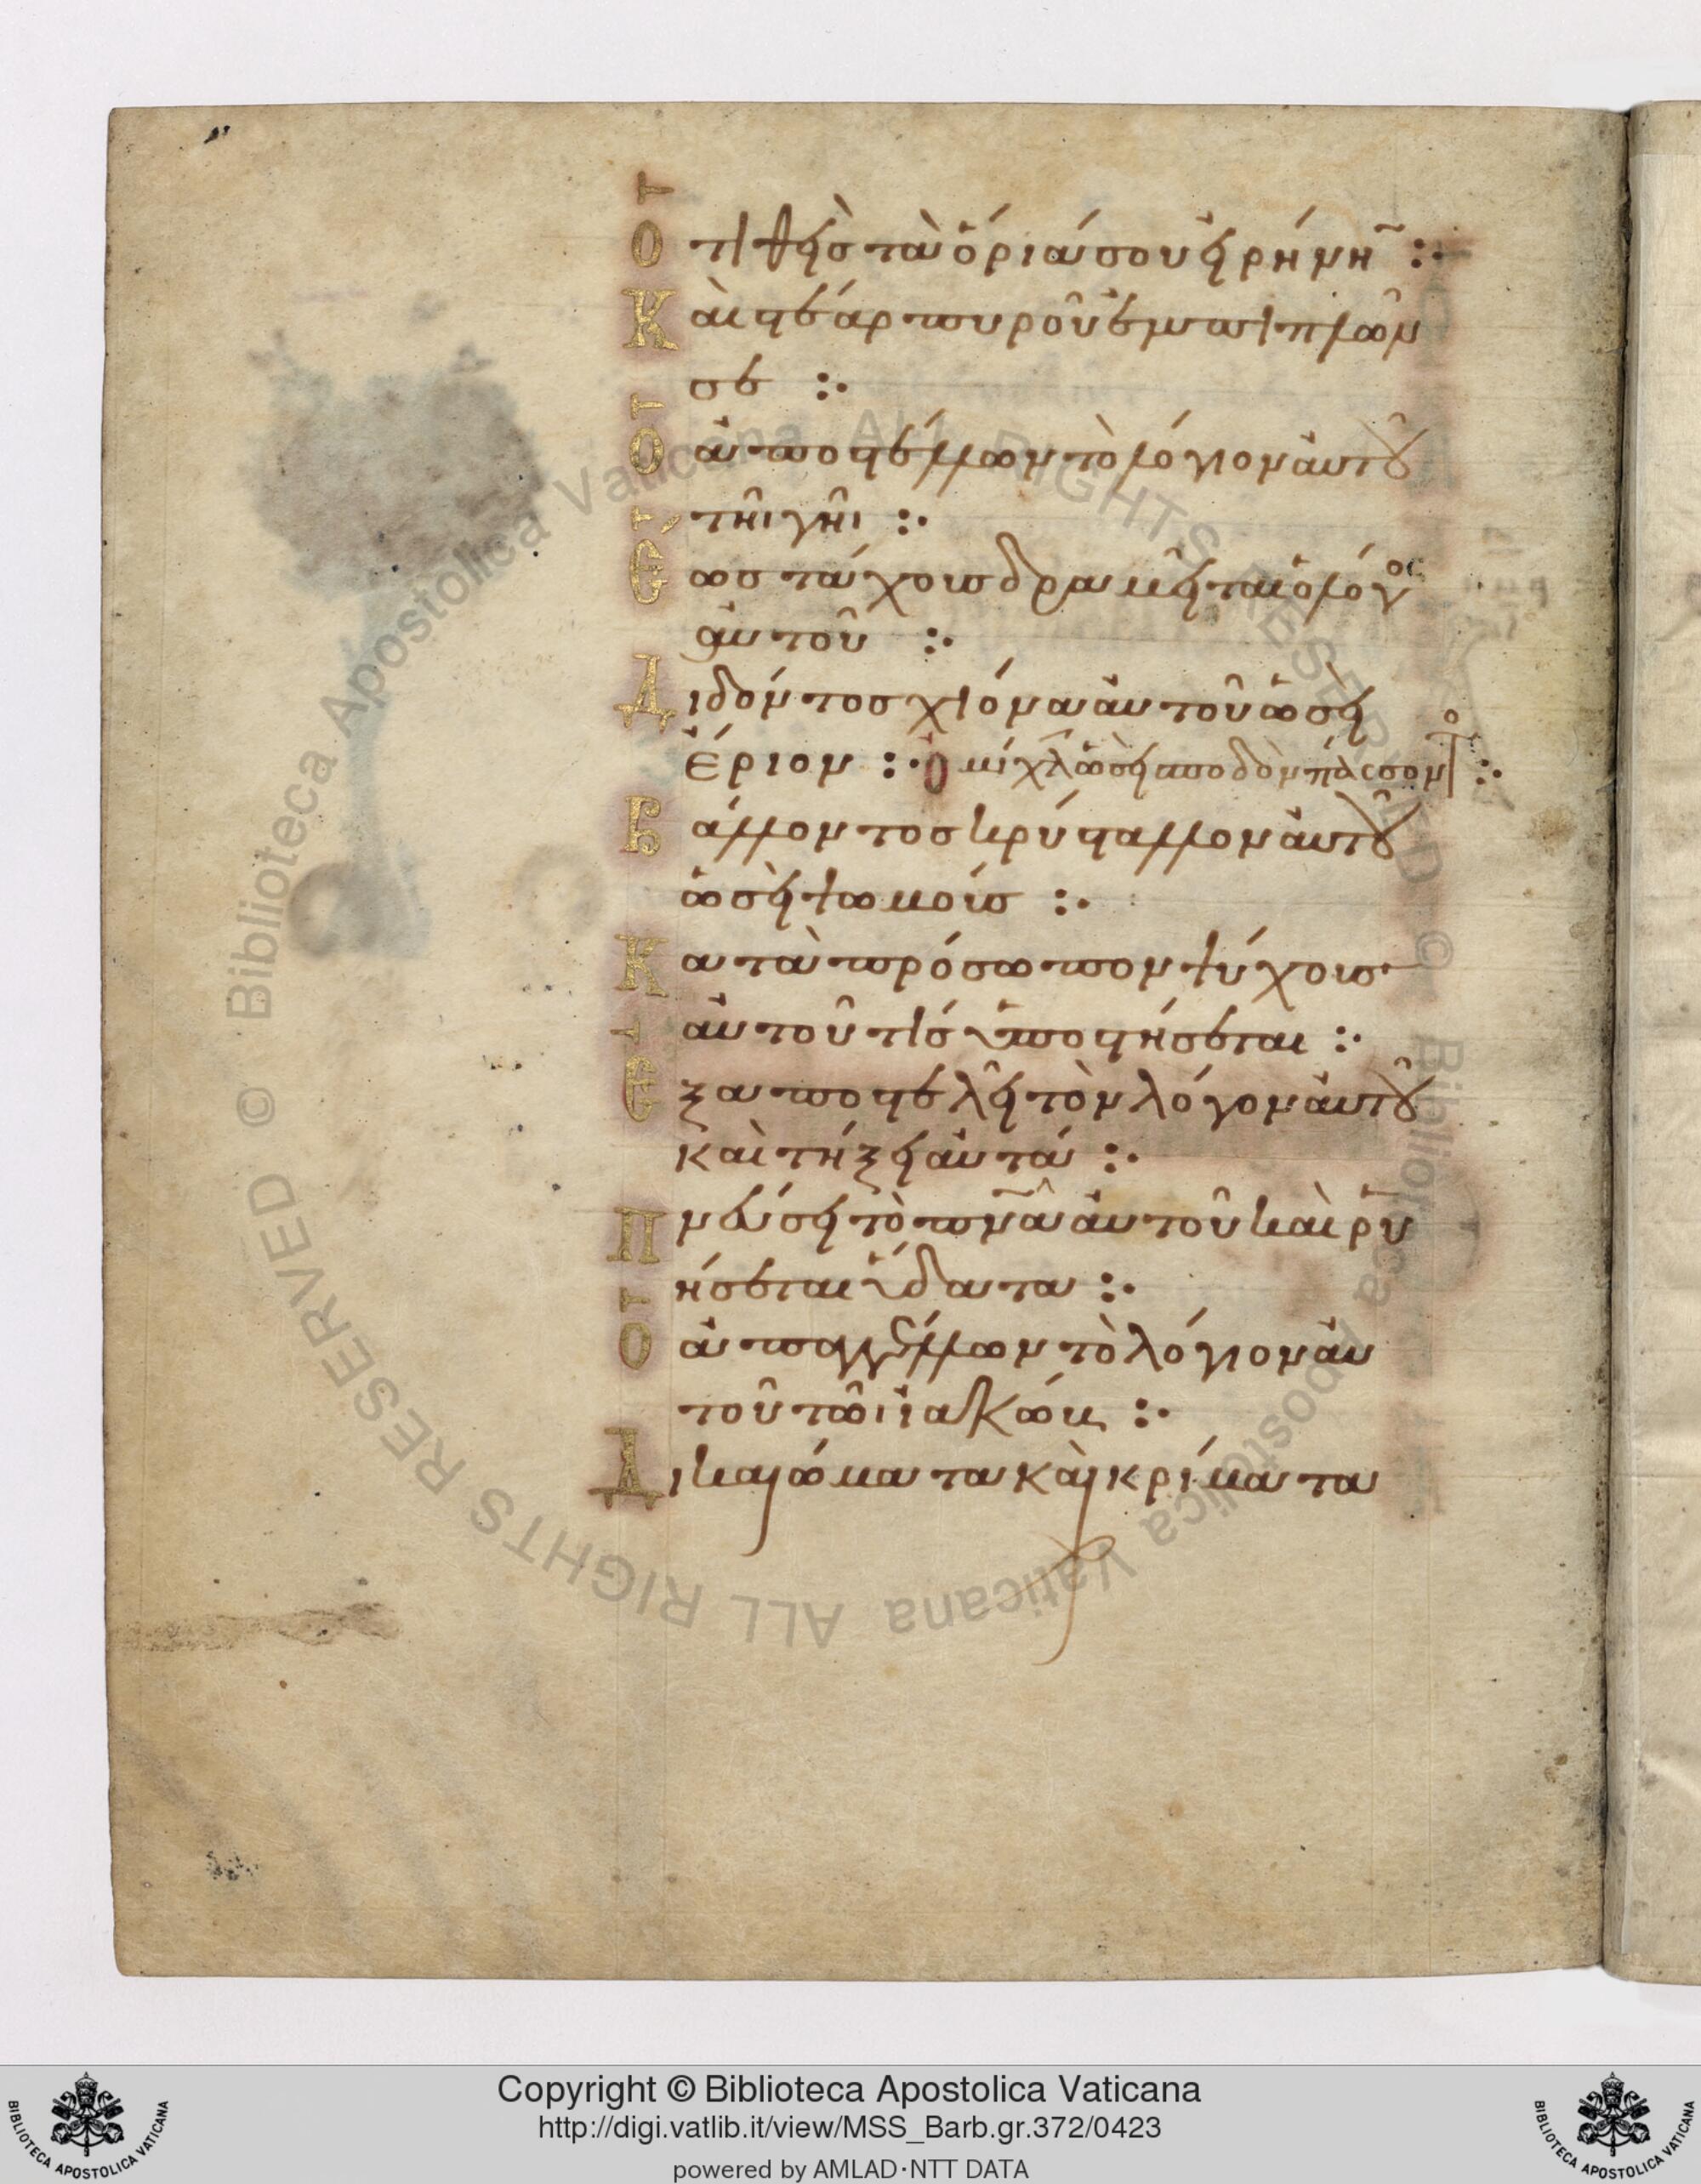 Ὁ τιθεὶς τὰ ὅριά σου εἰρήνη̅ :·
Καὶ στέαρ πυροῦ ἐμπιπλῶν
σε :·
Ὁ ἀποστέλλων τὸ λόγιον αὐτοῦ
τῆι γῆι :·
Ἕως τάχους δραμεῖται ὁ λόγος
αὐτοῦ :·
Διδόντος χιόνα αὐτοῦ ὡσεὶ
ἔριον : ὁμίχλ ὡσεὶ σποδὸν πάσσοντο :·
Βάλλοντος κρύσταλλον αὐτοῦ
ὡσεὶ ψωμούς :·
Κατὰ πρόσωπον ψύχους
αὐτοῦ τίς ὑποστήσεται :·
Ἐξαποστελεῖ τὸν λόγον αὐτοῦ
καὶ τήξει αὐτά :·
Πνεύσει τὸ πν̅α̅ αὐτοῦ καὶ ῥυ
ήσεται ὕδατα :·
Ὁ ἀπαγγέλλων τὸ λόγιον αὐ
τοῦ τῶι ἰακώβ :·
Δικαιώματα καὶ κρίματα
Copyright © Biblioteca Apostolica Vaticana
http://digi.vatlib.it/view/MSS_Barb.gr.372/0423
powered by AMLAD·NTT DATA
BIBLIOTECA APOSTOLICA VATICANA
BIBLIOTECA APOSTOLICA VATICANA
© Biblioteca Apostolica Vaticana ALL RIGHTS RESERVED © Biblioteca Apostolica Vaticana ALL RIGHTS RESERVED